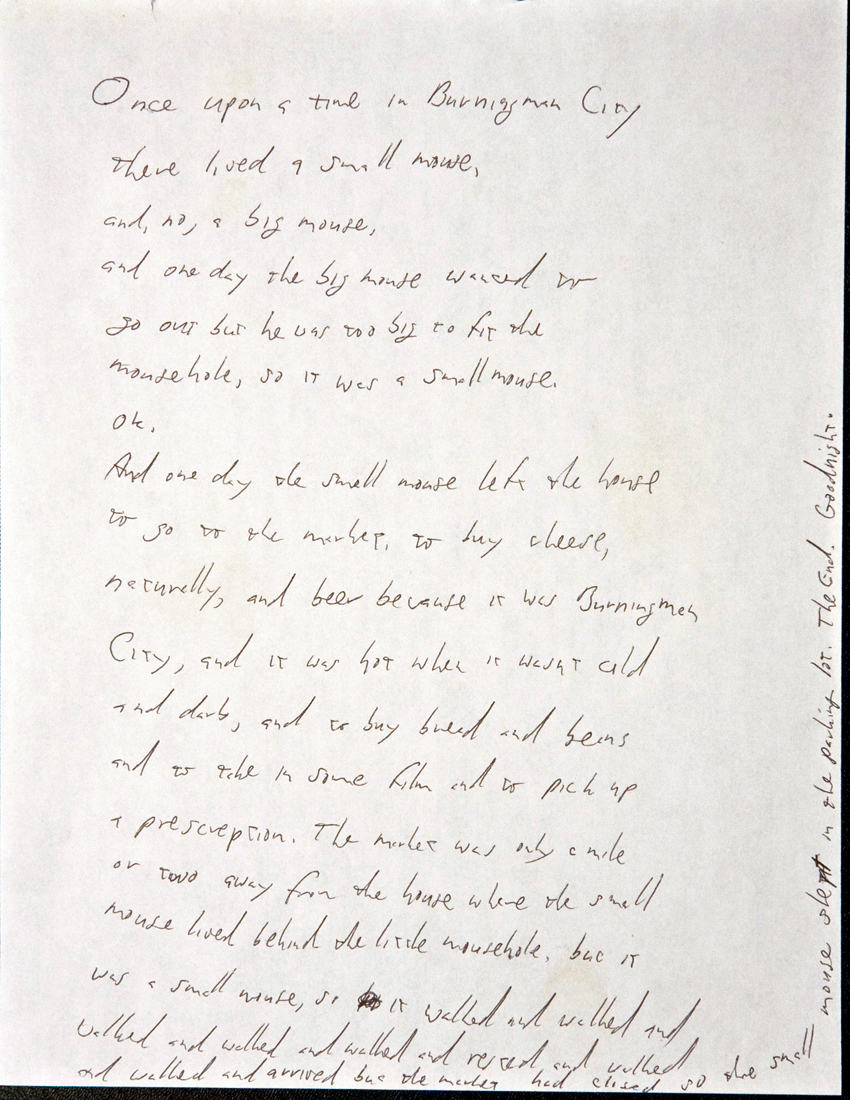 Once upon a time in Burningman City
there lived a small mouse,
and, no, a big mouse,
and one day the big mouse wanted to
go out but he was too big to fit the
mousehole, so it was a small mouse.
Ok.
And one day the small mouse left the house
to go to the market, to buy cheese,
naturally, and beer because it was Burningman
City, and it was hot when it wasn't cold
and dark, and to buy bread and beans
and to take in some film and to pick up
a prescreption. The market was only a mile
or two away from the house where the small
mouse lived behind the little mousehole, but it
was a small mouse, so it walked and walked and
walked and walked and walked and rested and walked
and walked and arrived but the market had closed so the small
mouse slept in the parking lot. The End. Goodnight.